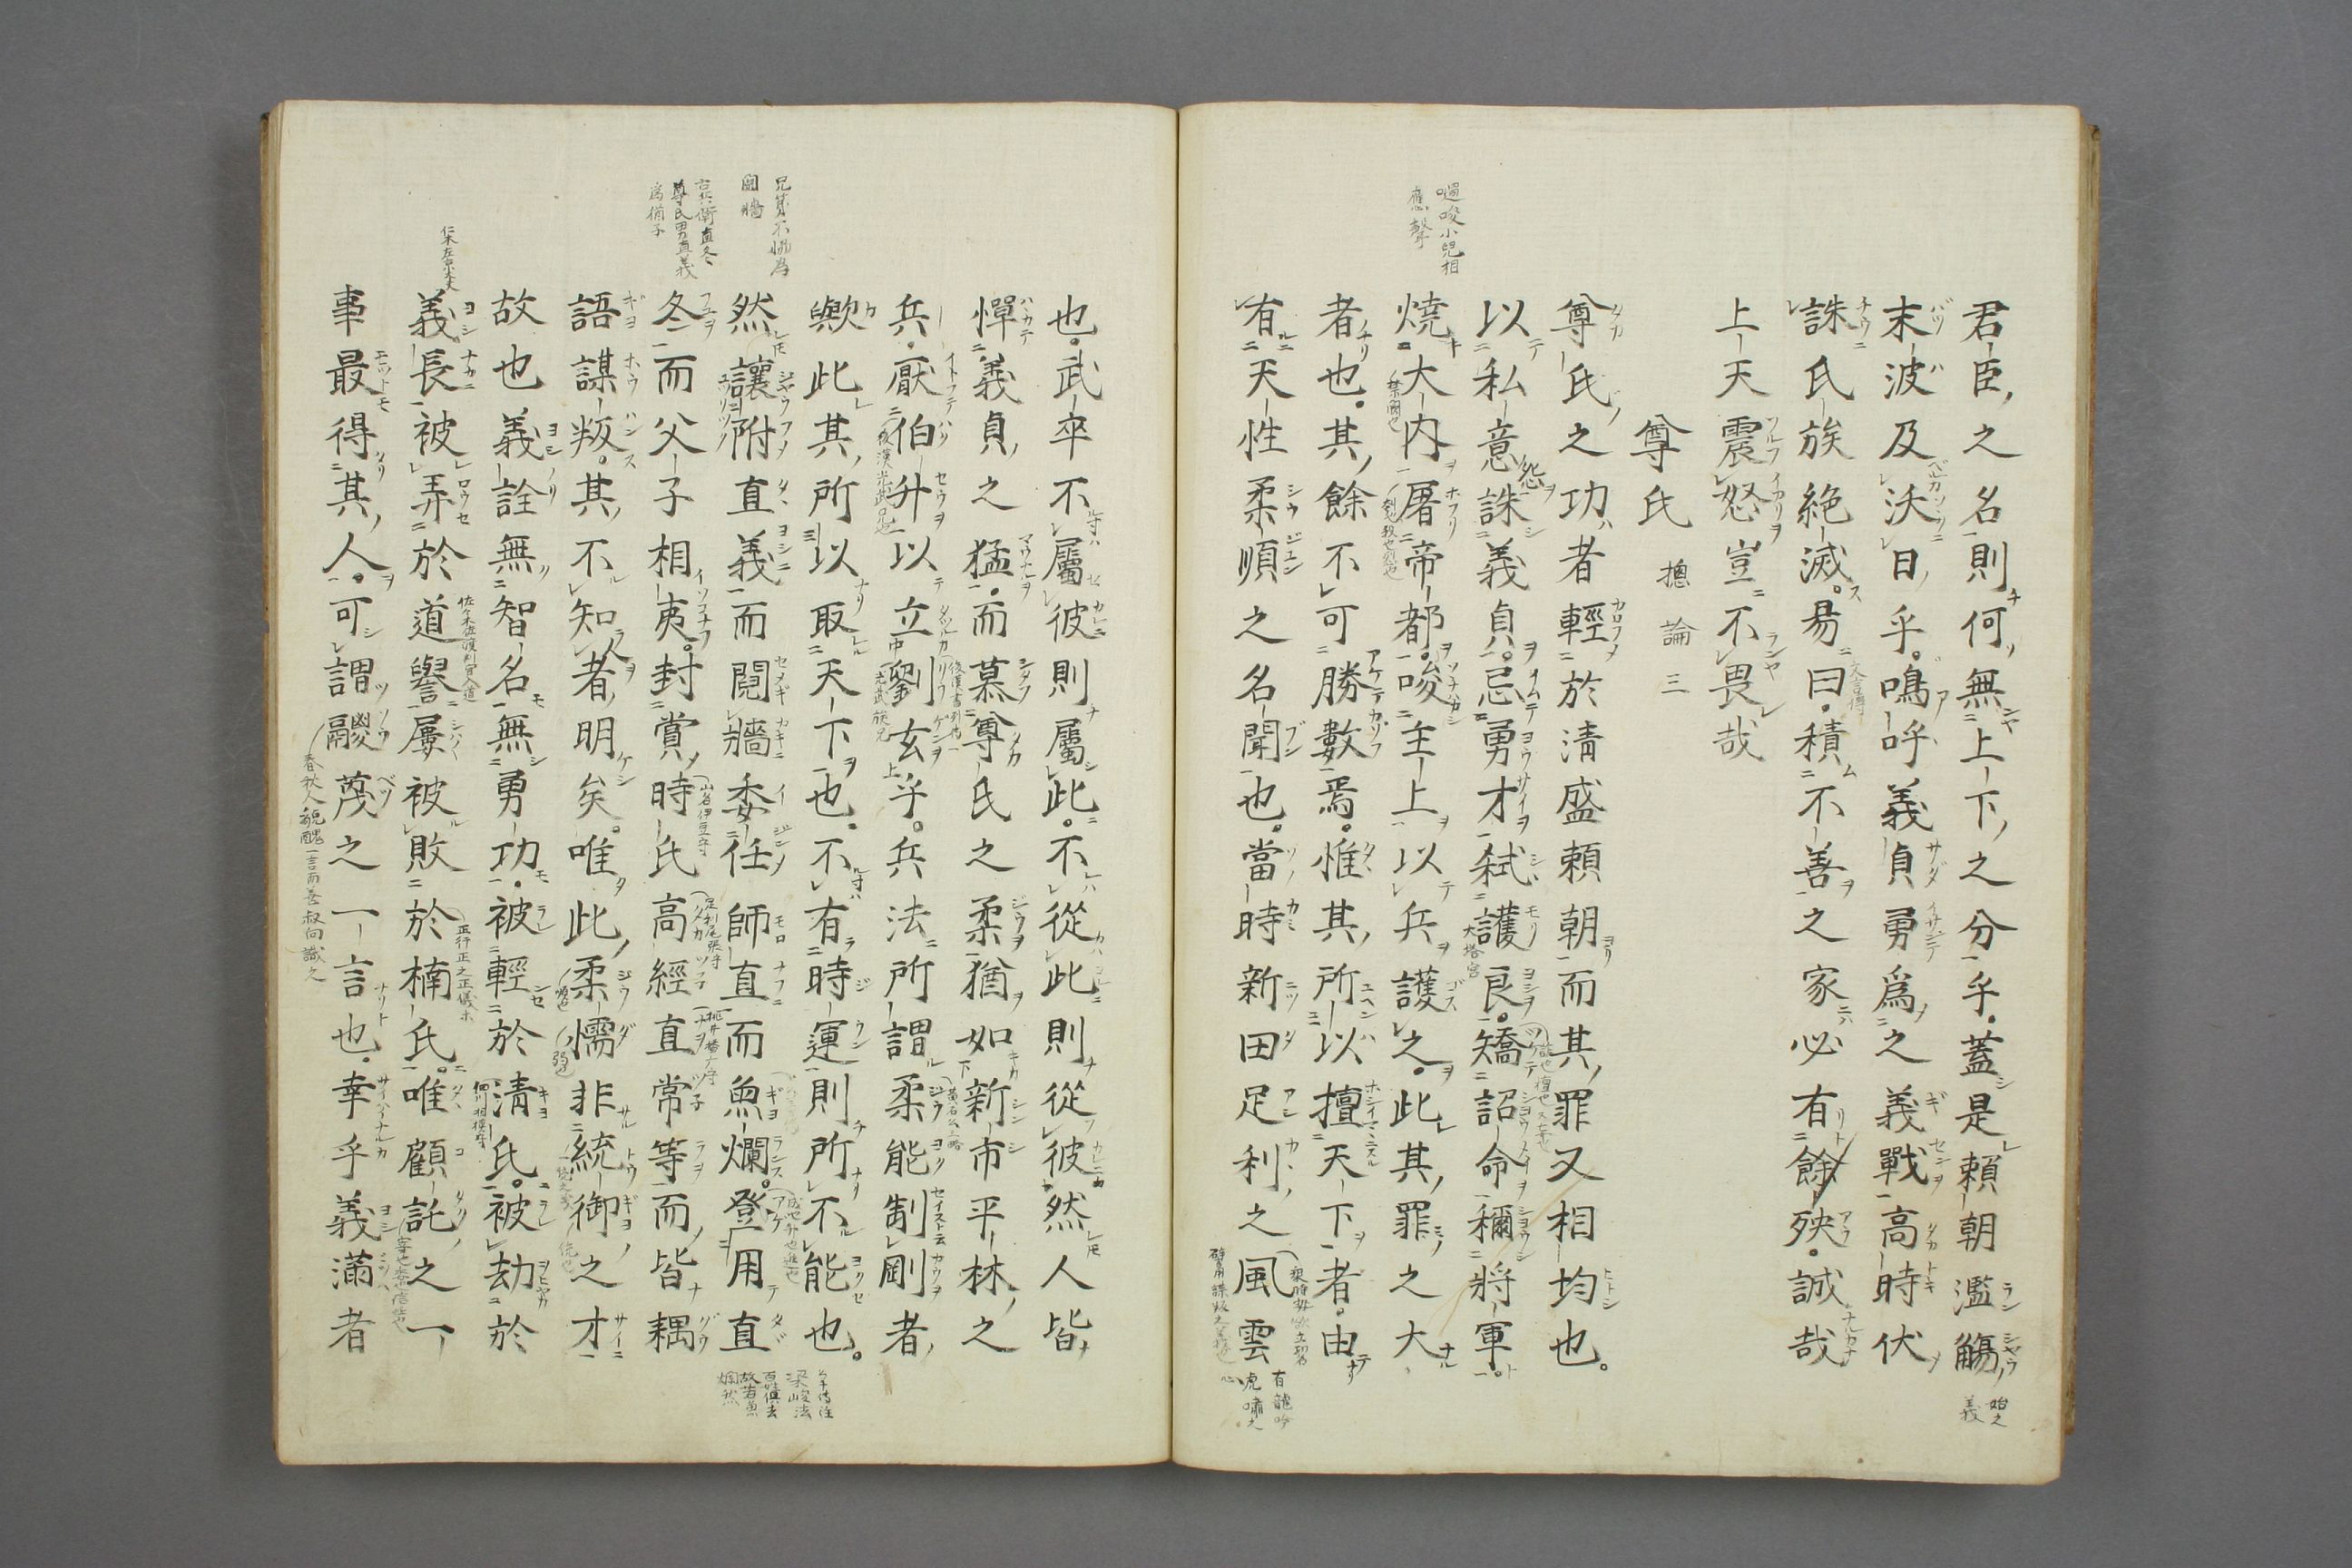 君臣之名則何無上下之分乎蓋是賴朝濫觴
末波及沃日乎。鳴呼義貞勇爲之義戰高時伏
誅氏族絶滅。易曰積不善之家必有餘殃誠哉
上天震怒豈不畏哉
尊氏 摠論三
尊氏之功者輕於清盛賴朝而其罪又相均也。
以私意誅義貞。忌勇才弑護良。矯詔命稱將軍。
燒大内屠帝都。唆主上以兵護之。此其罪之大
者也。其餘不可勝數焉。惟其所以擅天下者。由
有天性柔順之名聞也。當時新田足利之風雲
也。武卒不屬彼則屬此。不從此則從彼然人皆
憚義貞之猛。而慕尊氏之柔猶如新市平林之
兵厭伯升以立劉玄乎。兵法所謂柔能制剛者
歟此其所以取天下也。不有時運則所不能也。
然讓附直義而鬩牆委任師直而魚爛。登用直
冬而父子相夷。封賞時氏高經直常等而皆耦
語謀叛。其不知人者明矣。唯此柔懦非統御之才
故也義詮無智名無勇功。被輕於清氏。被劫於
義長被弄於道譽屢被敗於楠氏。唯顧託之一
事最得其人。可謂鬷蔑之一言也。幸乎義滿者
始之義
文言傳
怨
大塔宮
禁闕也
嗢唆小兒相應聲
有龍吟虎嘯之心
後漢光武兄也
光武族兄
後漢書列傳一
黄石公三略
兄弟不協為鬩牆
右兵衛直冬尊氏男直義為猶子
山名伊豆守
足利尾張守
桃井播广守
公羊傳注梁峻法百姓俱去故若魚爛然
弱也
佐々木佐渡判官入道
正行正之正儀ホ
細川相模守
仁木左京大夫
春秋人貌醜一言而善叔向識之